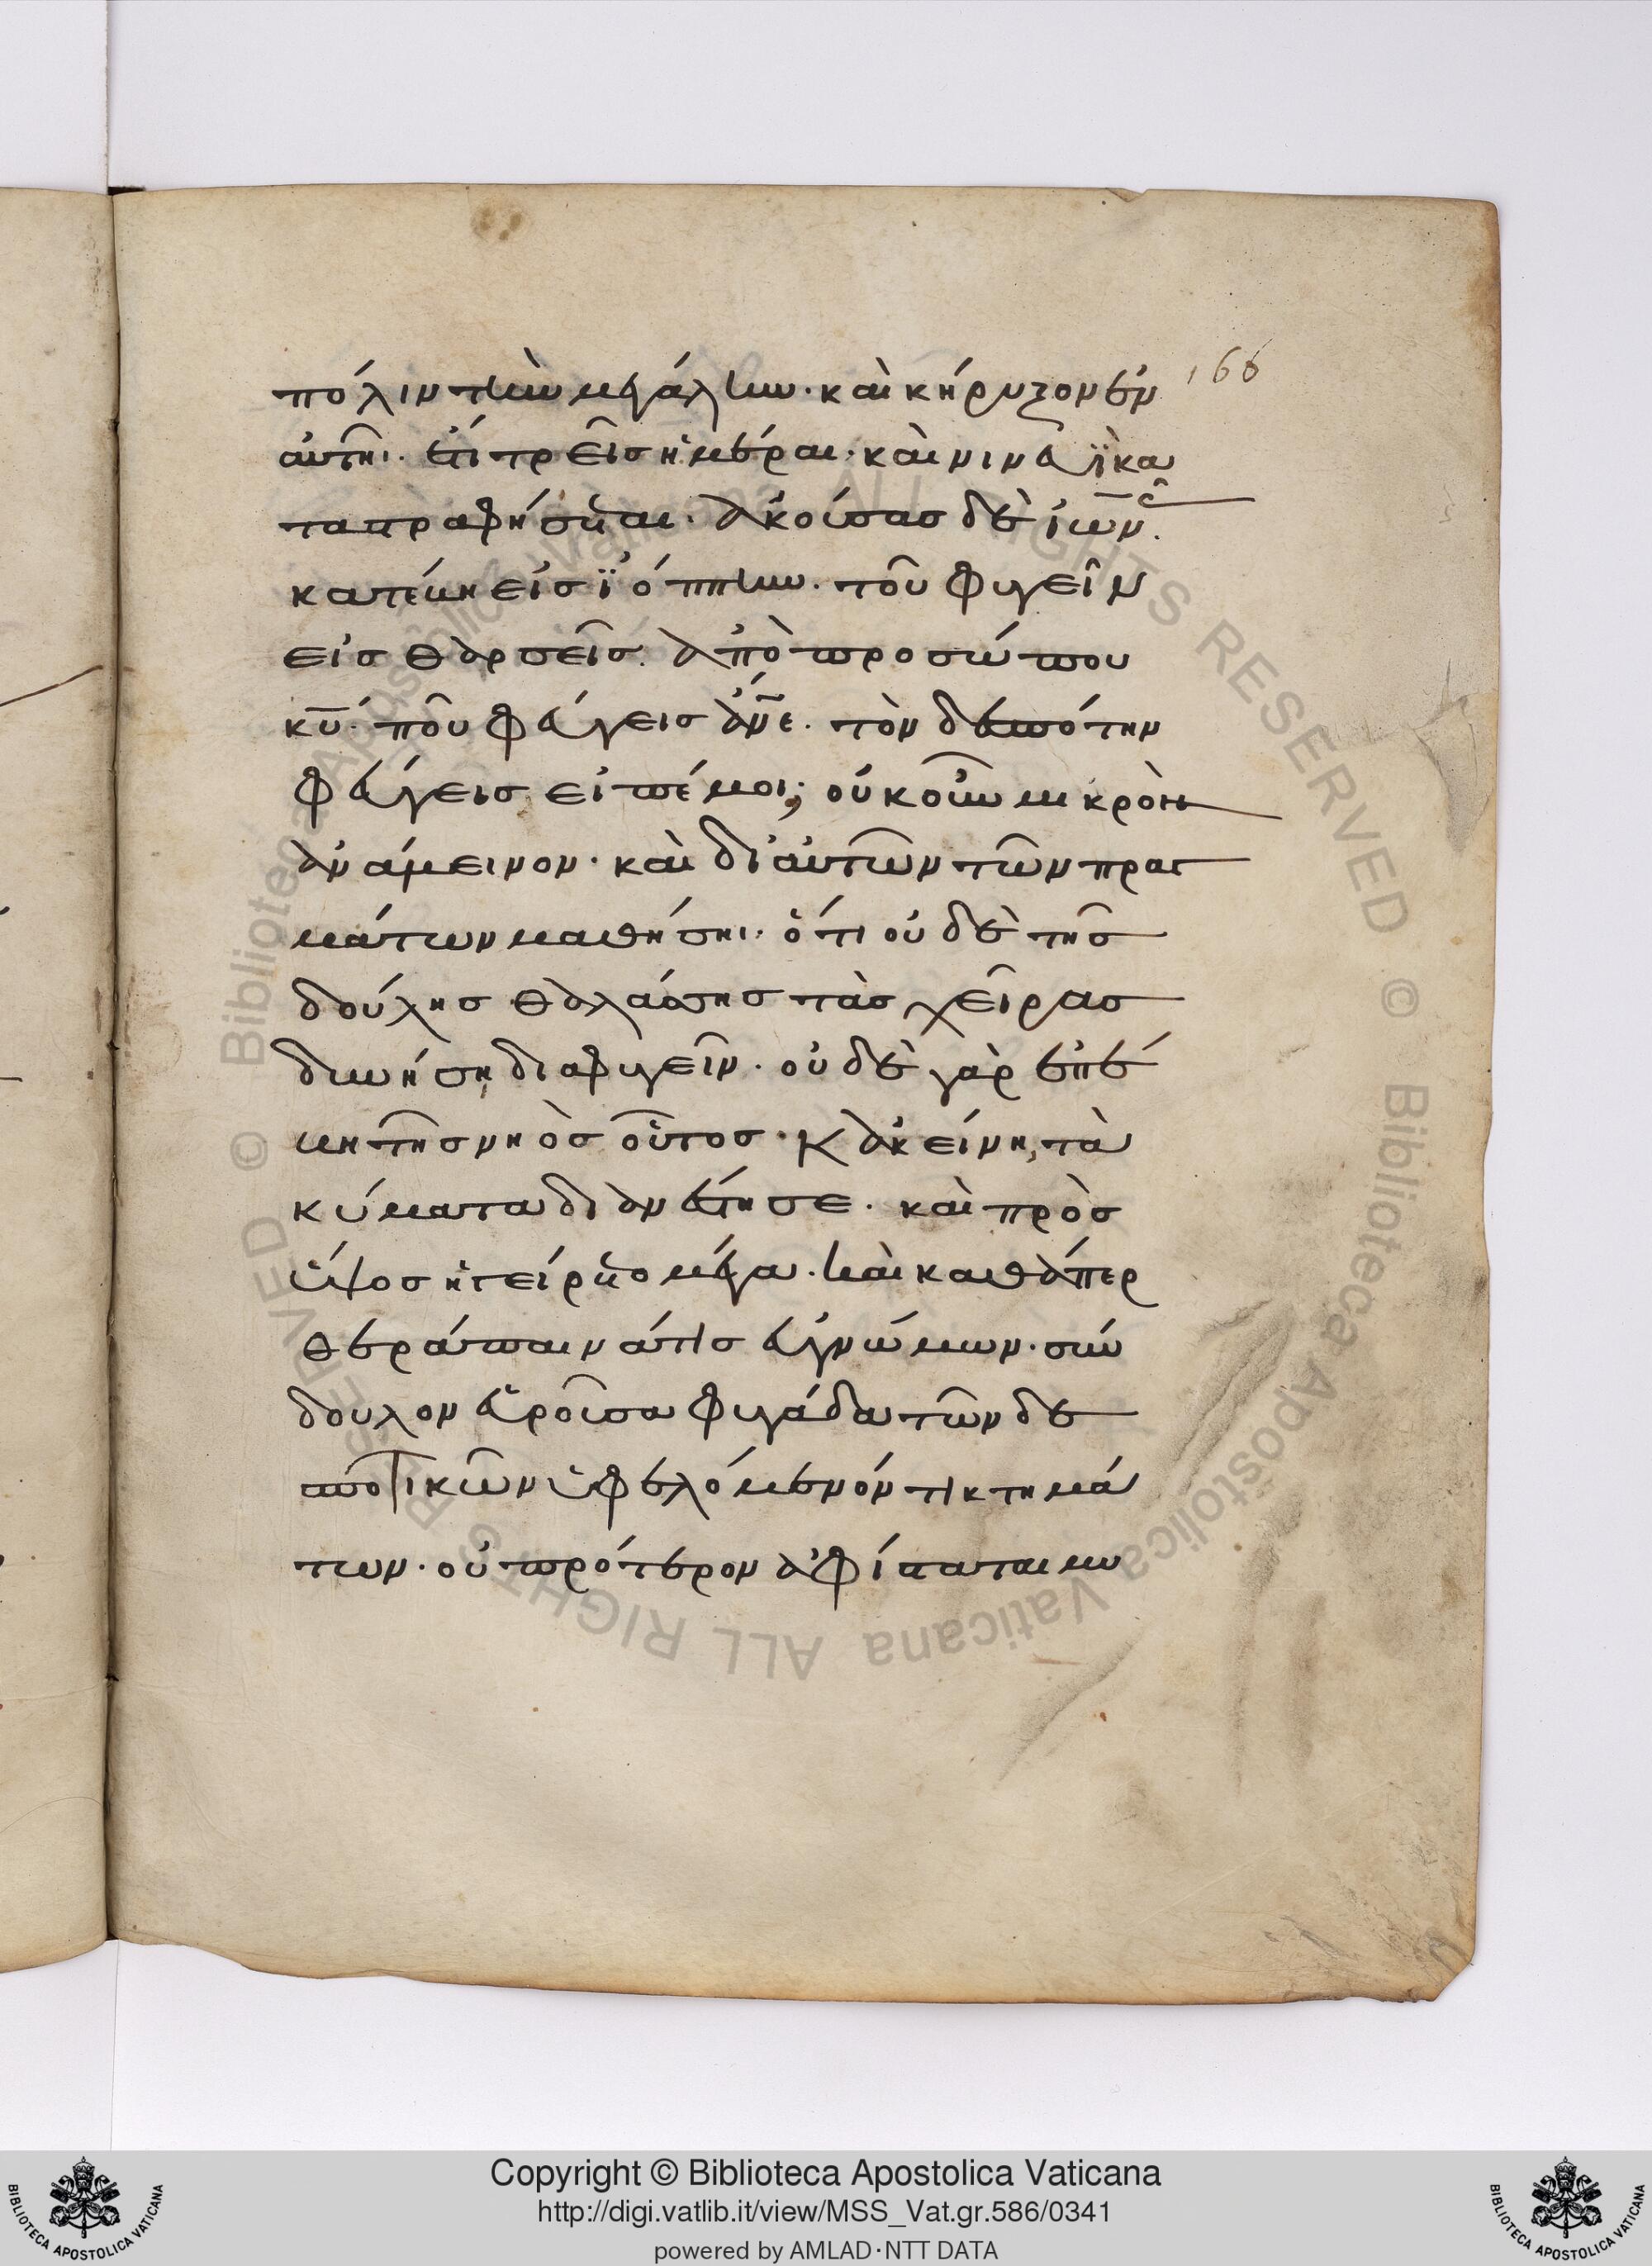 πόλιν τὴν μεγάλην· καὶ κήρυξον ἐν
166
αὐτῆι· ἔτι τρεῖς ἡμέραι· καὶ νινευῒ κα
ταστραφήσεται· ἀκούσας δὲ ἰωνᾶ(ς).
κατέβη εἰς ἰόππην· τοῦ φυγεῖν
εἰς θαρσεῖς. ἀπὸ προσώπου
κ̅υ̅· ποῦ φεύγεις ἄν̅ε̅. τὸν δεσπότην
φεύγεις εἰπέ μοι; οὐκοῦν μικρὸν
ἀνάμεινον· καὶ δι' αὐτῶν τῶν πραγ
μάτων μαθήσηι· ὅτι οὐδὲ τῆς
δούλης θαλάσσης τὰς χεῖρας
δυνήσῃ διαφυγεῖν. οὐδὲ γὰρ ἐπέ
βη τῆς νηὸς οὗτος· κἀκείνη τὰ
κύματα διανέστησε. καὶ πρὸς
ὕψος ἠγείρετο μέγα. καὶ καθάπερ
θεράπαινά τις εὐγνώμων· σύν
δουλον εὑροῦσα φυγάδα τῶν δε
σποτικῶν ὑφελόμενόν τι κτημά
των· οὐ πρότερον ἀφίσταται μυ
Copyright © Biblioteca Apostolica Vaticana
http://digi.vatlib.it/view/MSS_Vat.gr.586/0341
powered by AMLAD·NTT DATA
BIBLIOTECA APOSTOLICA VATICANA
BIBLIOTECA APOSTOLICA VATICANA
© Biblioteca Apostolica Vaticana ALL RIGHTS RESERVED © Biblioteca Apostolica Vaticana ALL RIGHTS RESERVED